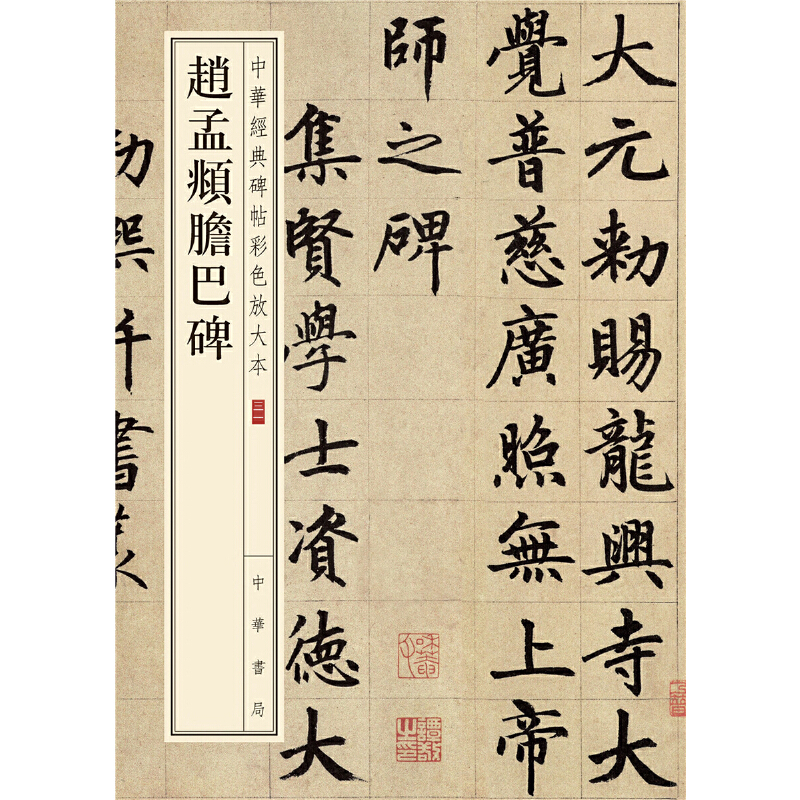 大元勑賜龍興寺大
覺普慈廣照無上帝
師之碑
集賢學士資德大
中華經典碑帖彩色放大本
三一
中華書局
趙孟頫膽巴碑